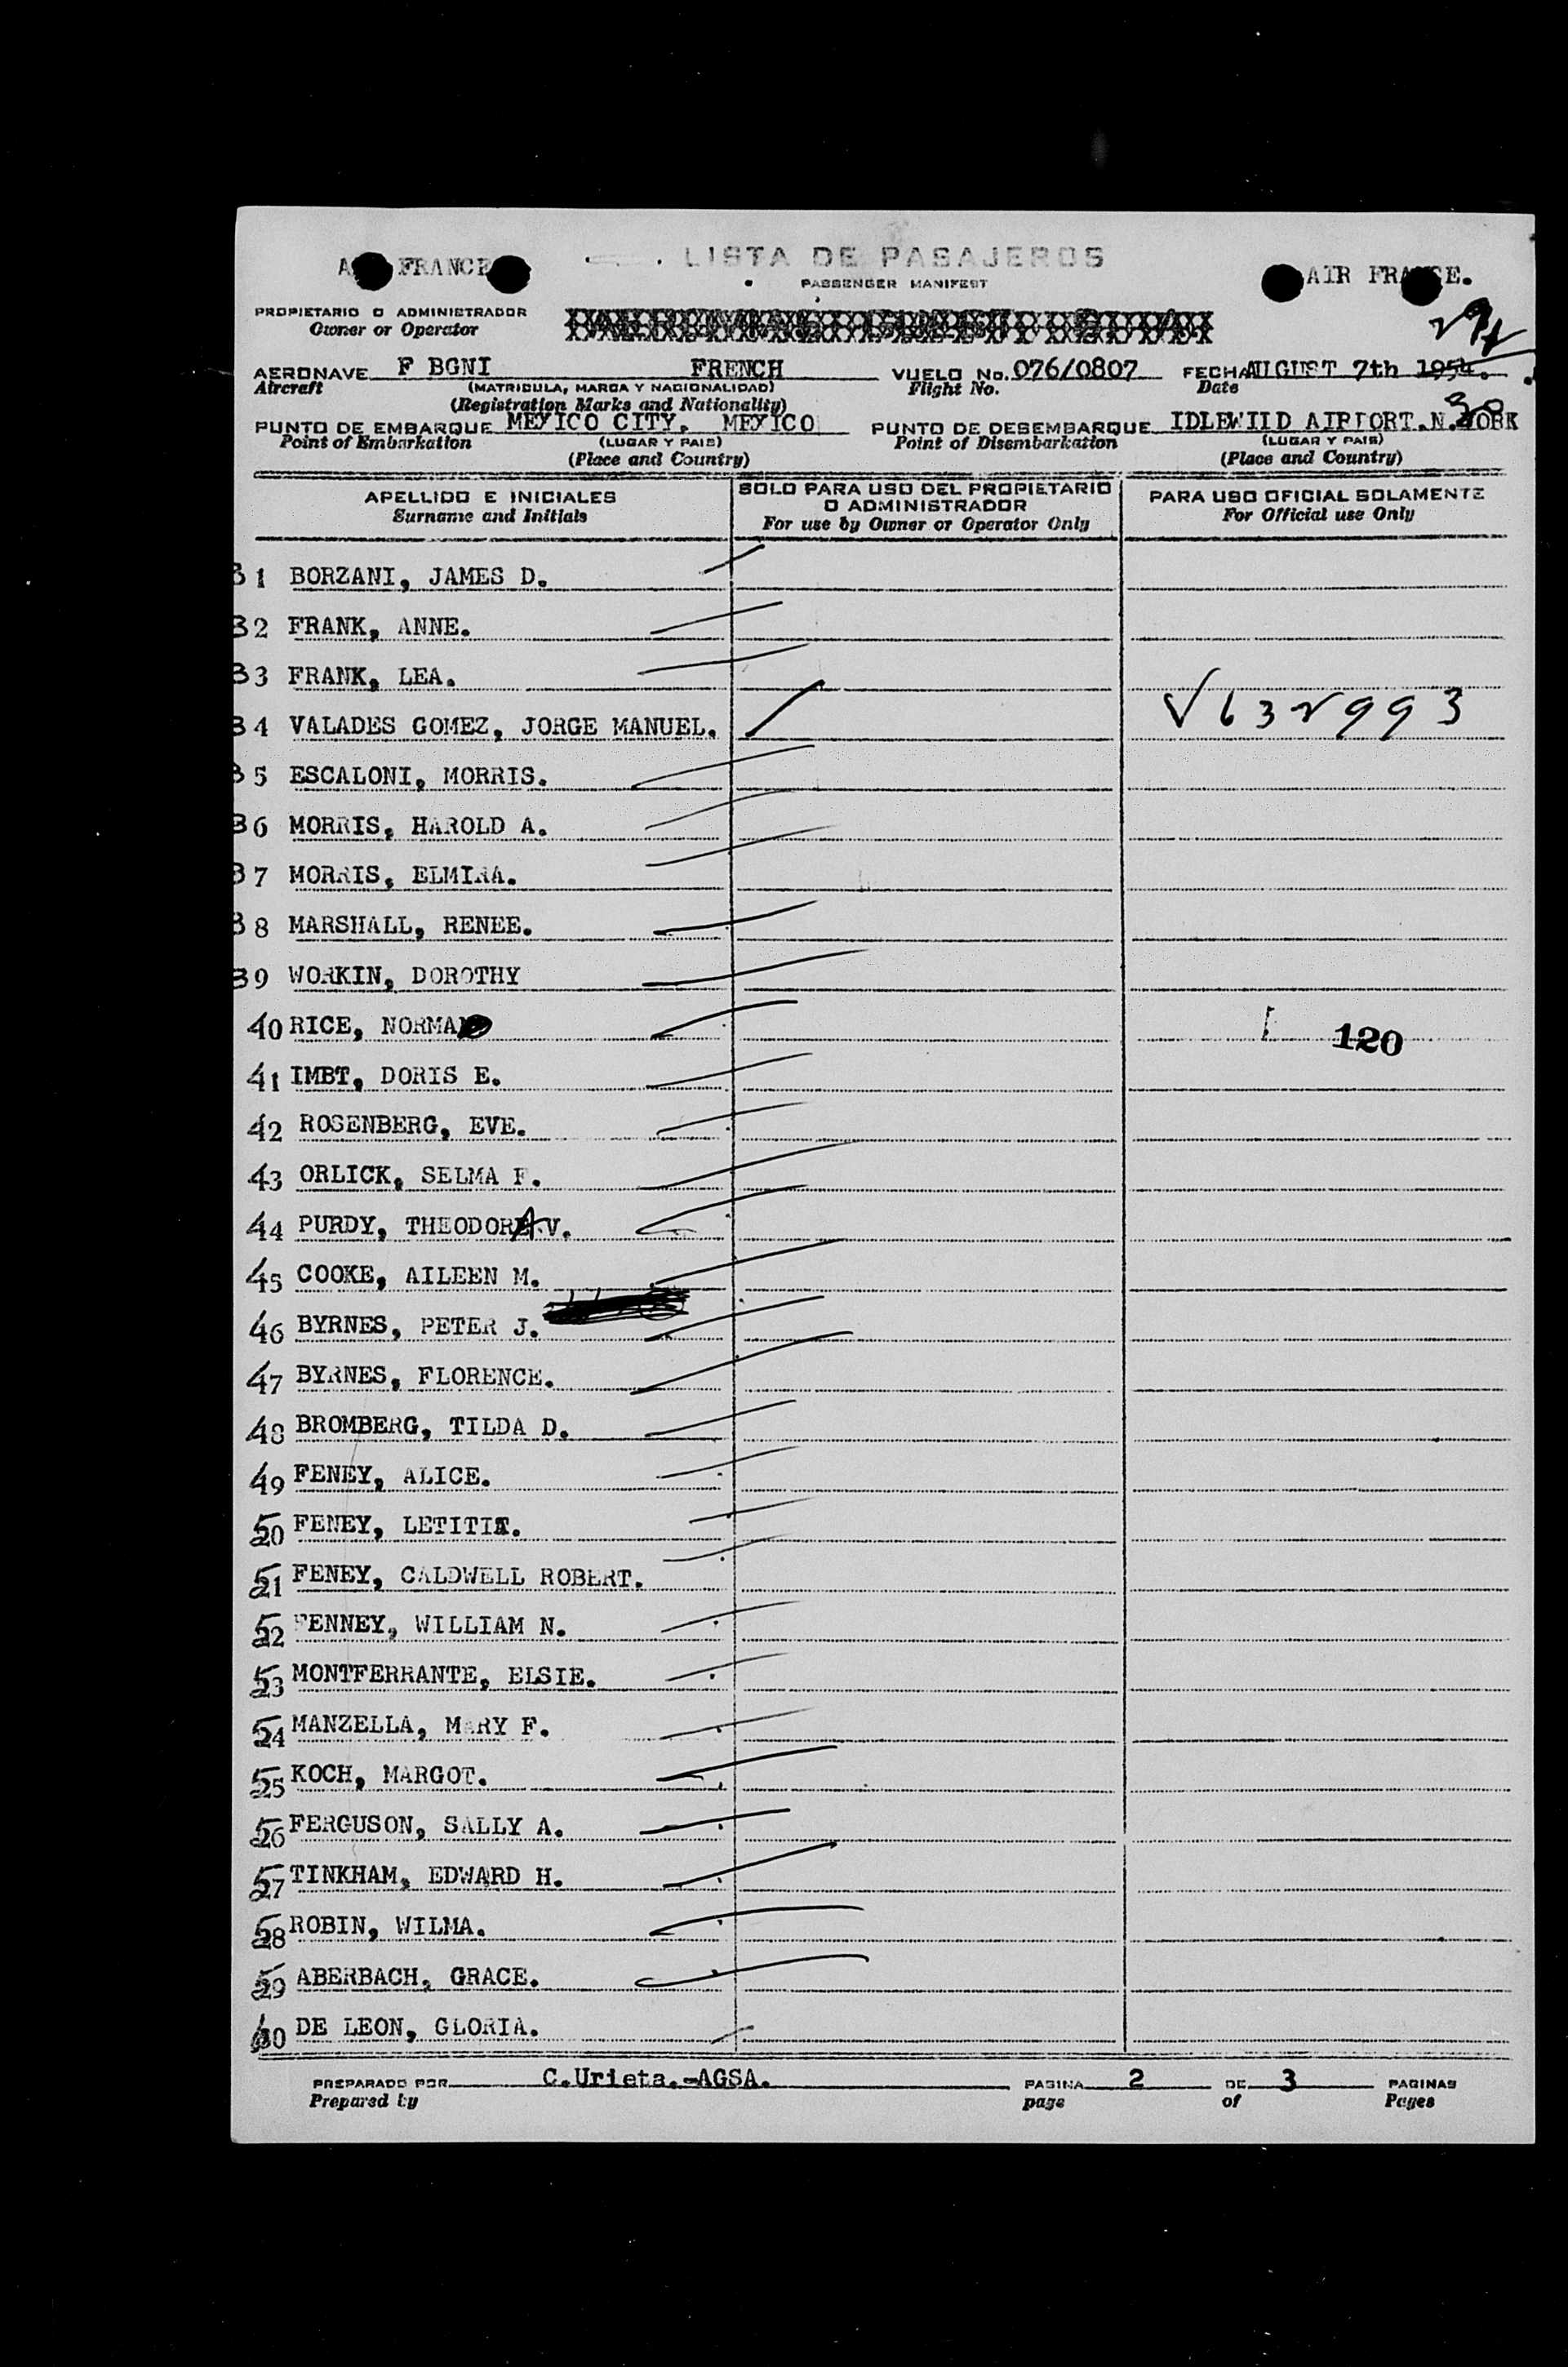 AIR FRANCE
LISTA DE PASAJEROS
PASSENGER MANIFEST
AIR FRANCE.
PROPIETARIO O ADMINISTRADOR
Owner or Operator
AERONAVE F BGNI FRENCH VUELO No. 076/0807 FECHA AUGUST 7th 1954.
Aircraft (MATRICULA, MARCA Y NACIONALIDAD) Flight No. Date
(Registration Marks and Nationality)
PUNTO DE EMBARQUE MEXICO CITY. MEXICO PUNTO DE DESEMBARQUE IDLEWILD AIRPORT.N.YORK
Point of Embarkation (LUGAR Y PAIS) Point of Disembarkation (LUGAR Y PAIS)
(Place and Country) (Place and Country)
30
APELLIDO E INICIALES
Surname and Initials
SOLO PARA USO DEL PROPIETARIO
O ADMINISTRADOR
For use by Owner or Operator Only
PARA USO OFICIAL SOLAMENTE
For Official use Only
31 BORZANI, JAMES D.
32 FRANK, ANNE.
33 FRANK, LEA.
34 VALADES GOMEZ, JORGE MANUEL. V632993
35 ESCALONI, MORRIS.
36 MORRIS, HAROLD A.
37 MORRIS, ELMIRA.
38 MARSHALL, RENEE.
39 WORKIN, DOROTHY
40 RICE, NORMA 120
41 IMBT, DORIS E.
42 ROSENBERG, EVE.
43 ORLICK, SELMA F.
44 PURDY, THEODORA V.
45 COOKE, AILEEN M.
46 BYRNES, PETER J.
47 BYRNES, FLORENCE.
48 BROMBERG, TILDA D.
49 FENEY, ALICE.
50 FENEY, LETITIA.
51 FENEY, CALDWELL ROBERT.
52 FENNEY, WILLIAM N.
53 MONTFERRANTE, ELSIE.
54 MANZELLA, MARY F.
55 KOCH, MARGOT.
56 FERGUSON, SALLY A.
57 TINKHAM, EDWARD H.
58 ROBIN, WILMA.
59 ABERBACH, GRACE.
60 DE LEON, GLORIA.
PREPARADO POR C.Urieta.-AGSA. PAGINA 2 DE 3 PAGINAS
Prepared by page of Pages